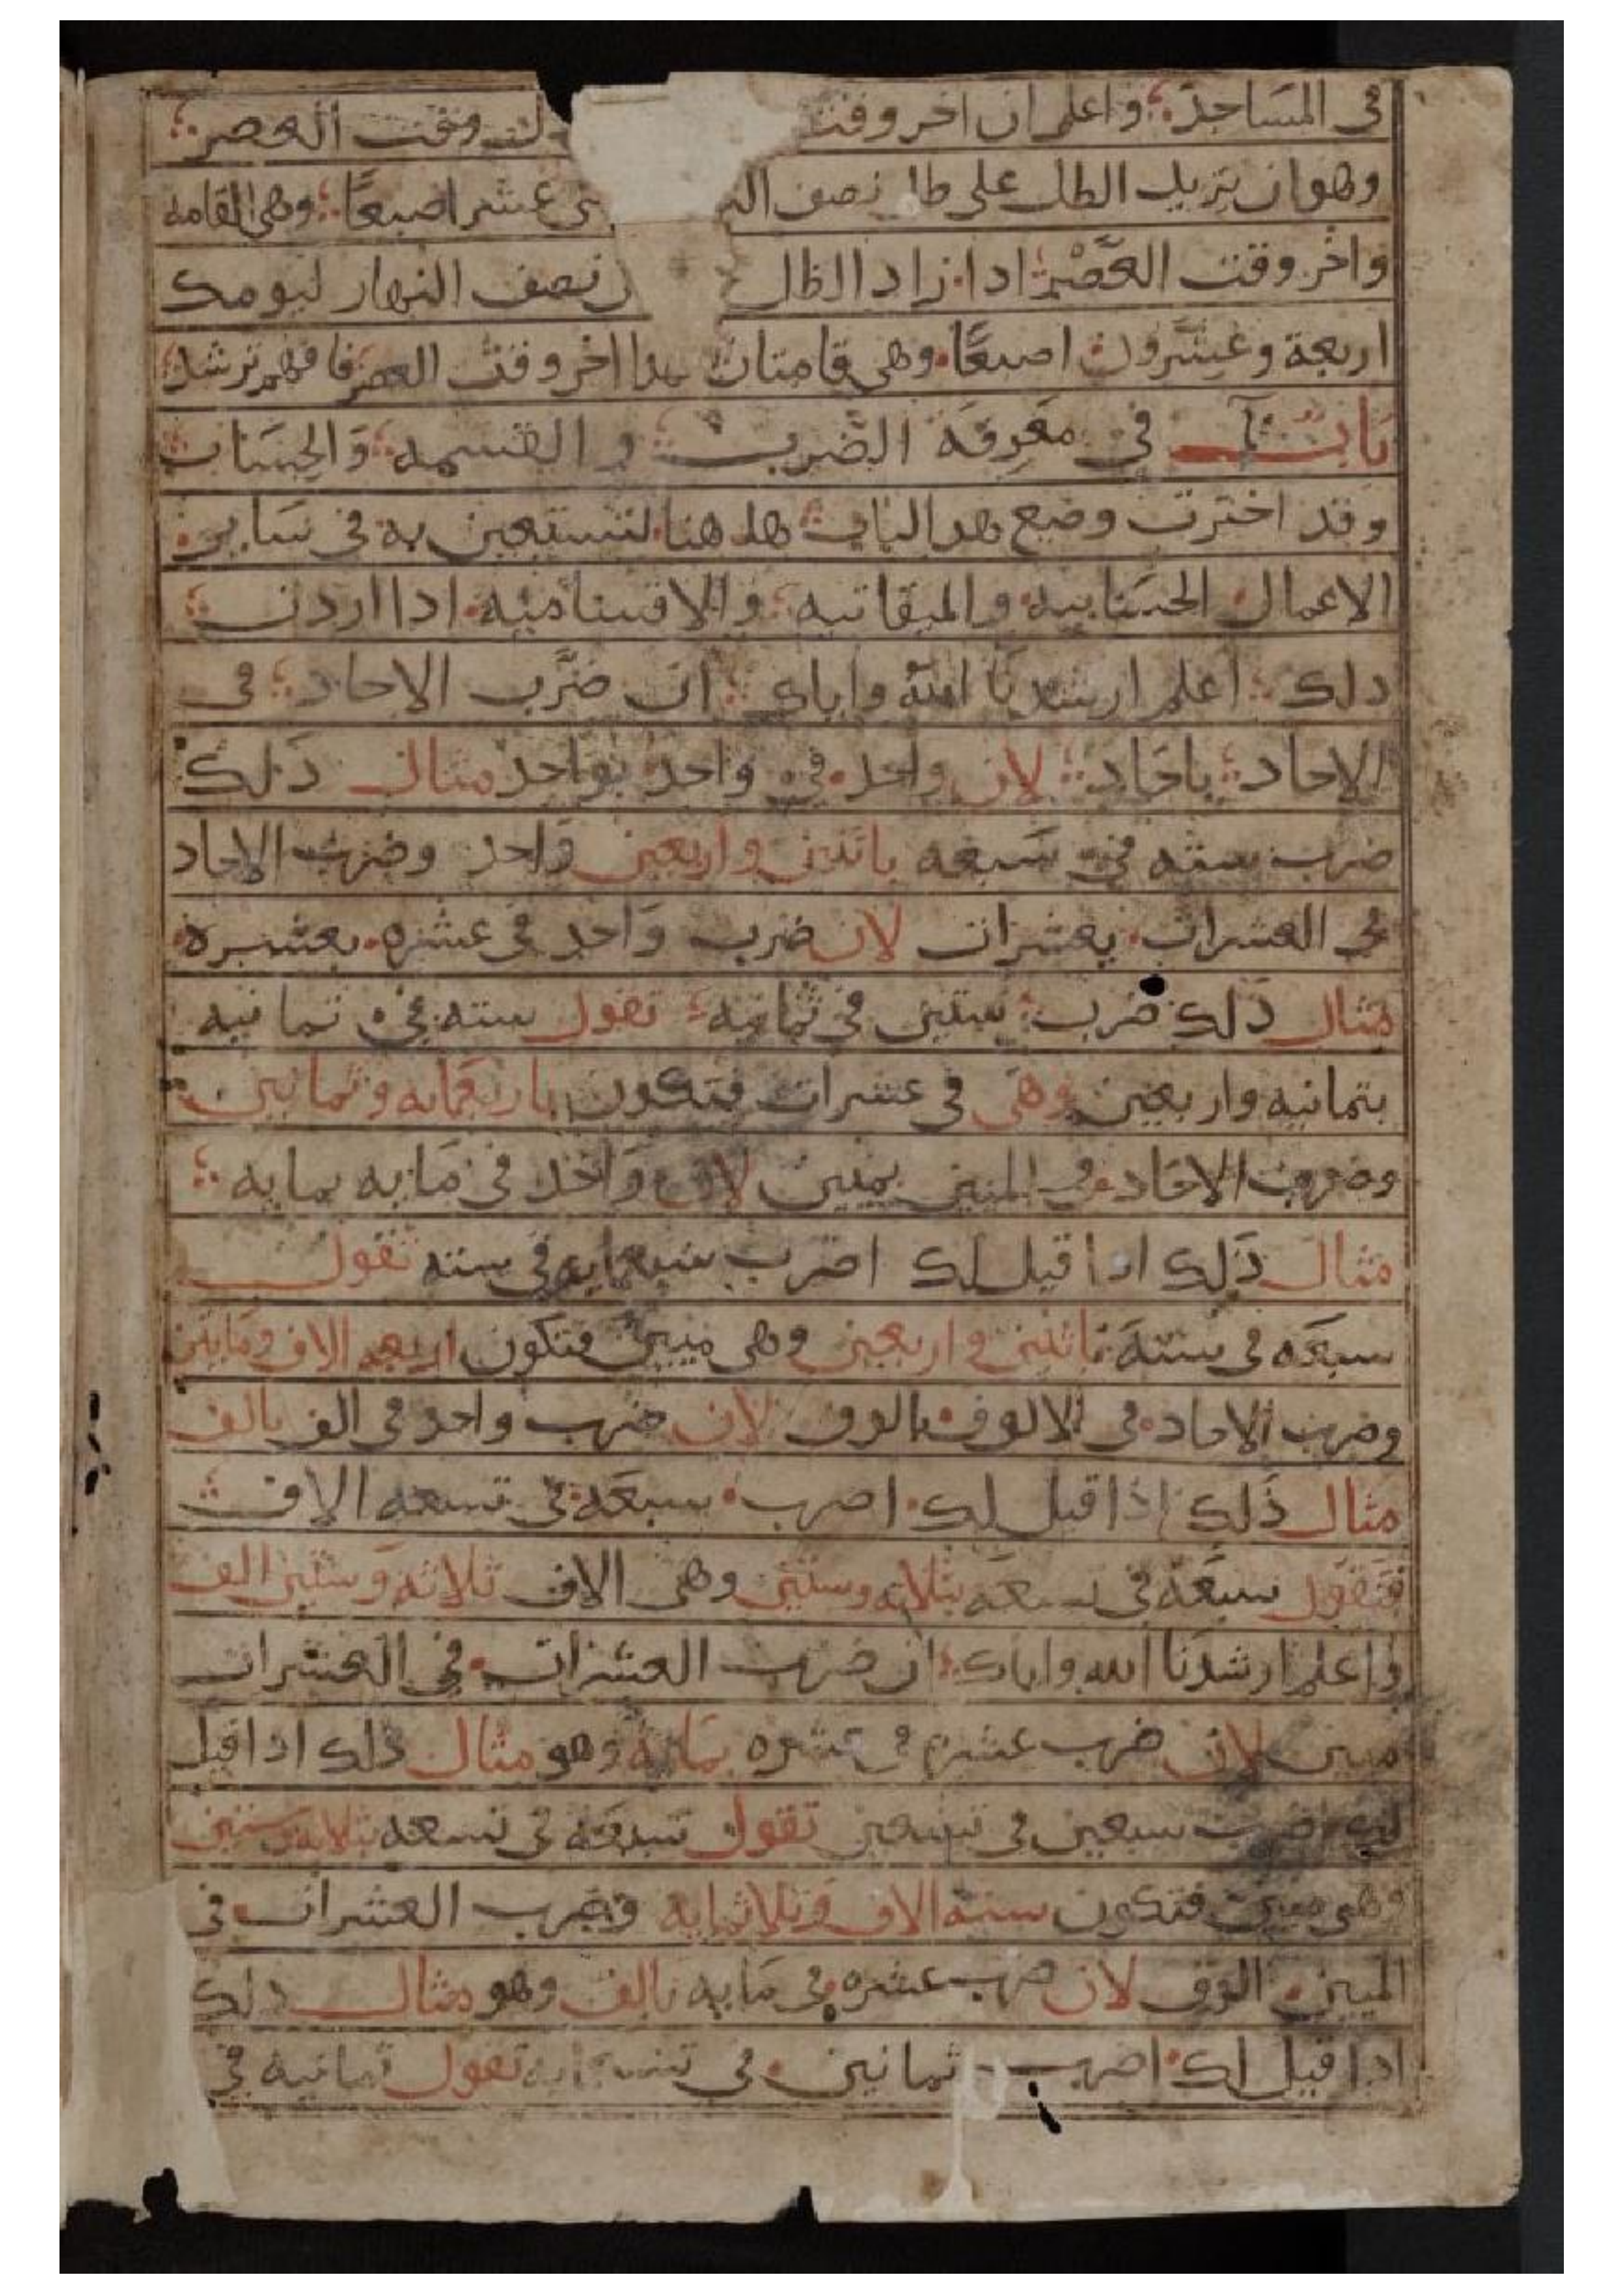 في المساجد واعلم ان اخر وقت وقت العصر
وهو ان يزيد الظل على ظل نصف عشر اصبعا وهي القامه
واخر وقت العصر ادا زاد الظل نصف النهار ليومك
اربعة وعشرون اصبعا وهي قامتان هدا اخر وقت العصر فافهم ترشد
باب في معرفة الضرب والقسمه والحساب
وقد اخترت وضع هدا الباب هاهنا لتستعين به في ساير
الاعمال الحسابيه والميقاتيه ادا اردت
دلك اعلم ارشدنا الله واياك ان ضرب الاحاد في
الاحاد باحاد لان واحد في واحد بواحد مثال ذلك
ضرب سته في سبعه باثنين واربعين واحد وضرب الاحاد
في العشرات بعشرات لان ضرب واحد في عشره بعشره
مثال ذلك ضرب ستين في ثمانيه تقول سته في ثمانيه
بثمانيه واربعين وهي في عشرات فتكون باربعمايه وثمانين
وضرب الاحاد في المئين بمئين لان واحد في مايه بمايه
مثال ذلك ادا قيل لك اضرب سبعمايه في سته تقول
سبعه في سته باثنين واربعين وهي ميين فتكون اربعه الاف ومايتين
وضرب الاحاد في الالوف بالوف لان ضرب واحد في الف بالف
مثال ذلك اذا قيل لك اضرب سبعه في تسعه الاف
فتقول سبعة في تسعه بثلاثه وستين وهي الاف ثلاثه وستين الف
واعلم ارشدنا الله واياك ان ضرب العشرات في العشرات
ميين لان ضرب عشره في عشره بمايه وهو مثال ذلك ادا قيل
لك اضرب سبعين في تسعين تقول سبعة في تسعه بثلاثه وستين
وهي ميين فتكون سته الاف وثلاثمايه وضرب العشرات في
الميين الوف لان ضرب عشره في مايه بالف وهو مثال دلك
ادا قيل لك اضرب ثمانين في تقول ثمانيه في